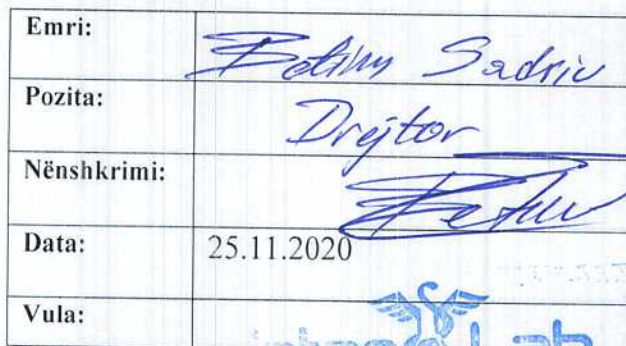 Emri: Betim Sadriu
Pozita: Drejtor
Nënshkrimi:
Data: 25.11.2020
Vula:
Lab